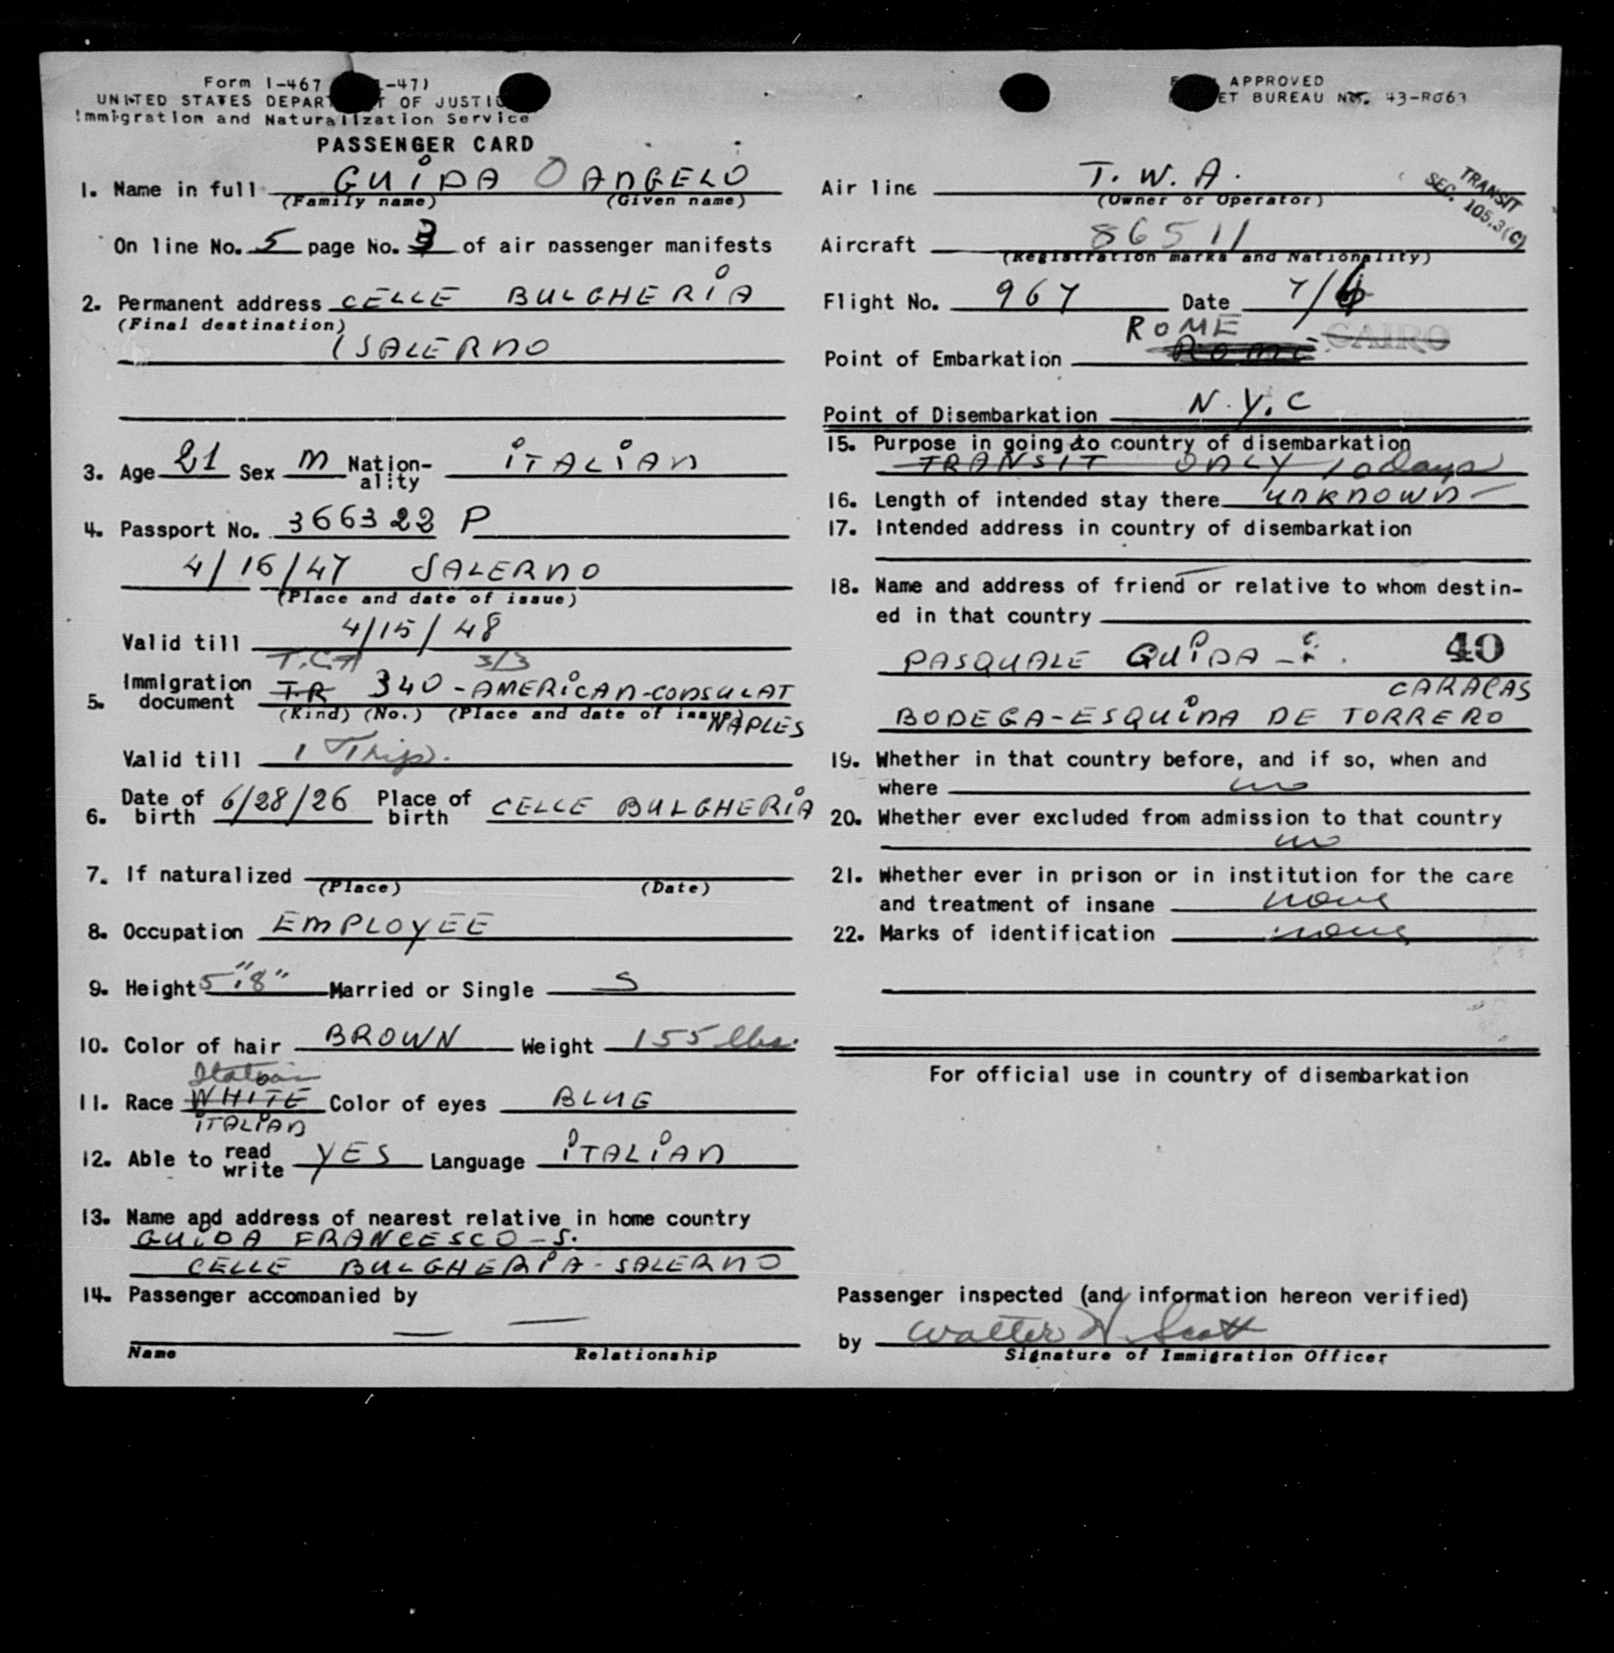 Form I-467 -47)
UNITED STATES DEPAR T OF JUSTIC
Immigration and Naturalization Service
PASSENGER CARD
1. Name in full GUIDA O ANGELO
(Family name) (Given name)
On line No. 5 page No. 3 of air passenger manifests
2. Permanent address CELLE BULGHERIA
(Final destination)
(SALERNO
3. Age 21 Sex M Nation-ality ITALIAN
4. Passport No. 366322 P
4/16/47 SALERNO
(Place and date of issue)
Valid till 4/15/48
T.C.A 3/3
5. Immigration document T.R 340 - AMERICAN-CONSULAT
(Kind) (No.) (Place and date of issue)
NAPLES
Valid till 1 Trip.
6. Date of birth 6/28/26 Place of birth CELLE BULGHERIA
7. If naturalized
(Place) (Date)
8. Occupation EMPLOYEE
9. Height 5"8" Married or Single S
10. Color of hair BROWN Weight 155 lbs.
Italian
11. Race WHITE Color of eyes BLUE
ITALIAN
12. Able to read write YES Language ITALIAN
13. Name and address of nearest relative in home country
GUIDA FRANCESCO - S.
CELLE BULGHERIA - SALERNO
14. Passenger accompanied by
Name Relationship
APPROVED
ET BUREAU No. 43-R063
Air line T. W. A.
(Owner or Operator)
TRANSIT
SEC. 105.3(C)
Aircraft 86511
(Registration marks and Nationality)
Flight No. 967 Date 7/6
ROME
Point of Embarkation ROME CAIRO
Point of Disembarkation N.Y.C
15. Purpose in going to country of disembarkation
TRANSIT ONLY 10 days
16. Length of intended stay there UNKNOWN
17. Intended address in country of disembarkation
18. Name and address of friend or relative to whom destin-
ed in that country
PASQUALE GUIDA - 40
CARACAS
BODEGA-ESQUINA DE TORRERO
19. Whether in that country before, and if so, when and
where no
20. Whether ever excluded from admission to that country
no
21. Whether ever in prison or in institution for the care
and treatment of insane none
22. Marks of identification none
For official use in country of disembarkation
Passenger inspected (and information hereon verified)
by Walter H. Scott
Signature of Immigration Officer